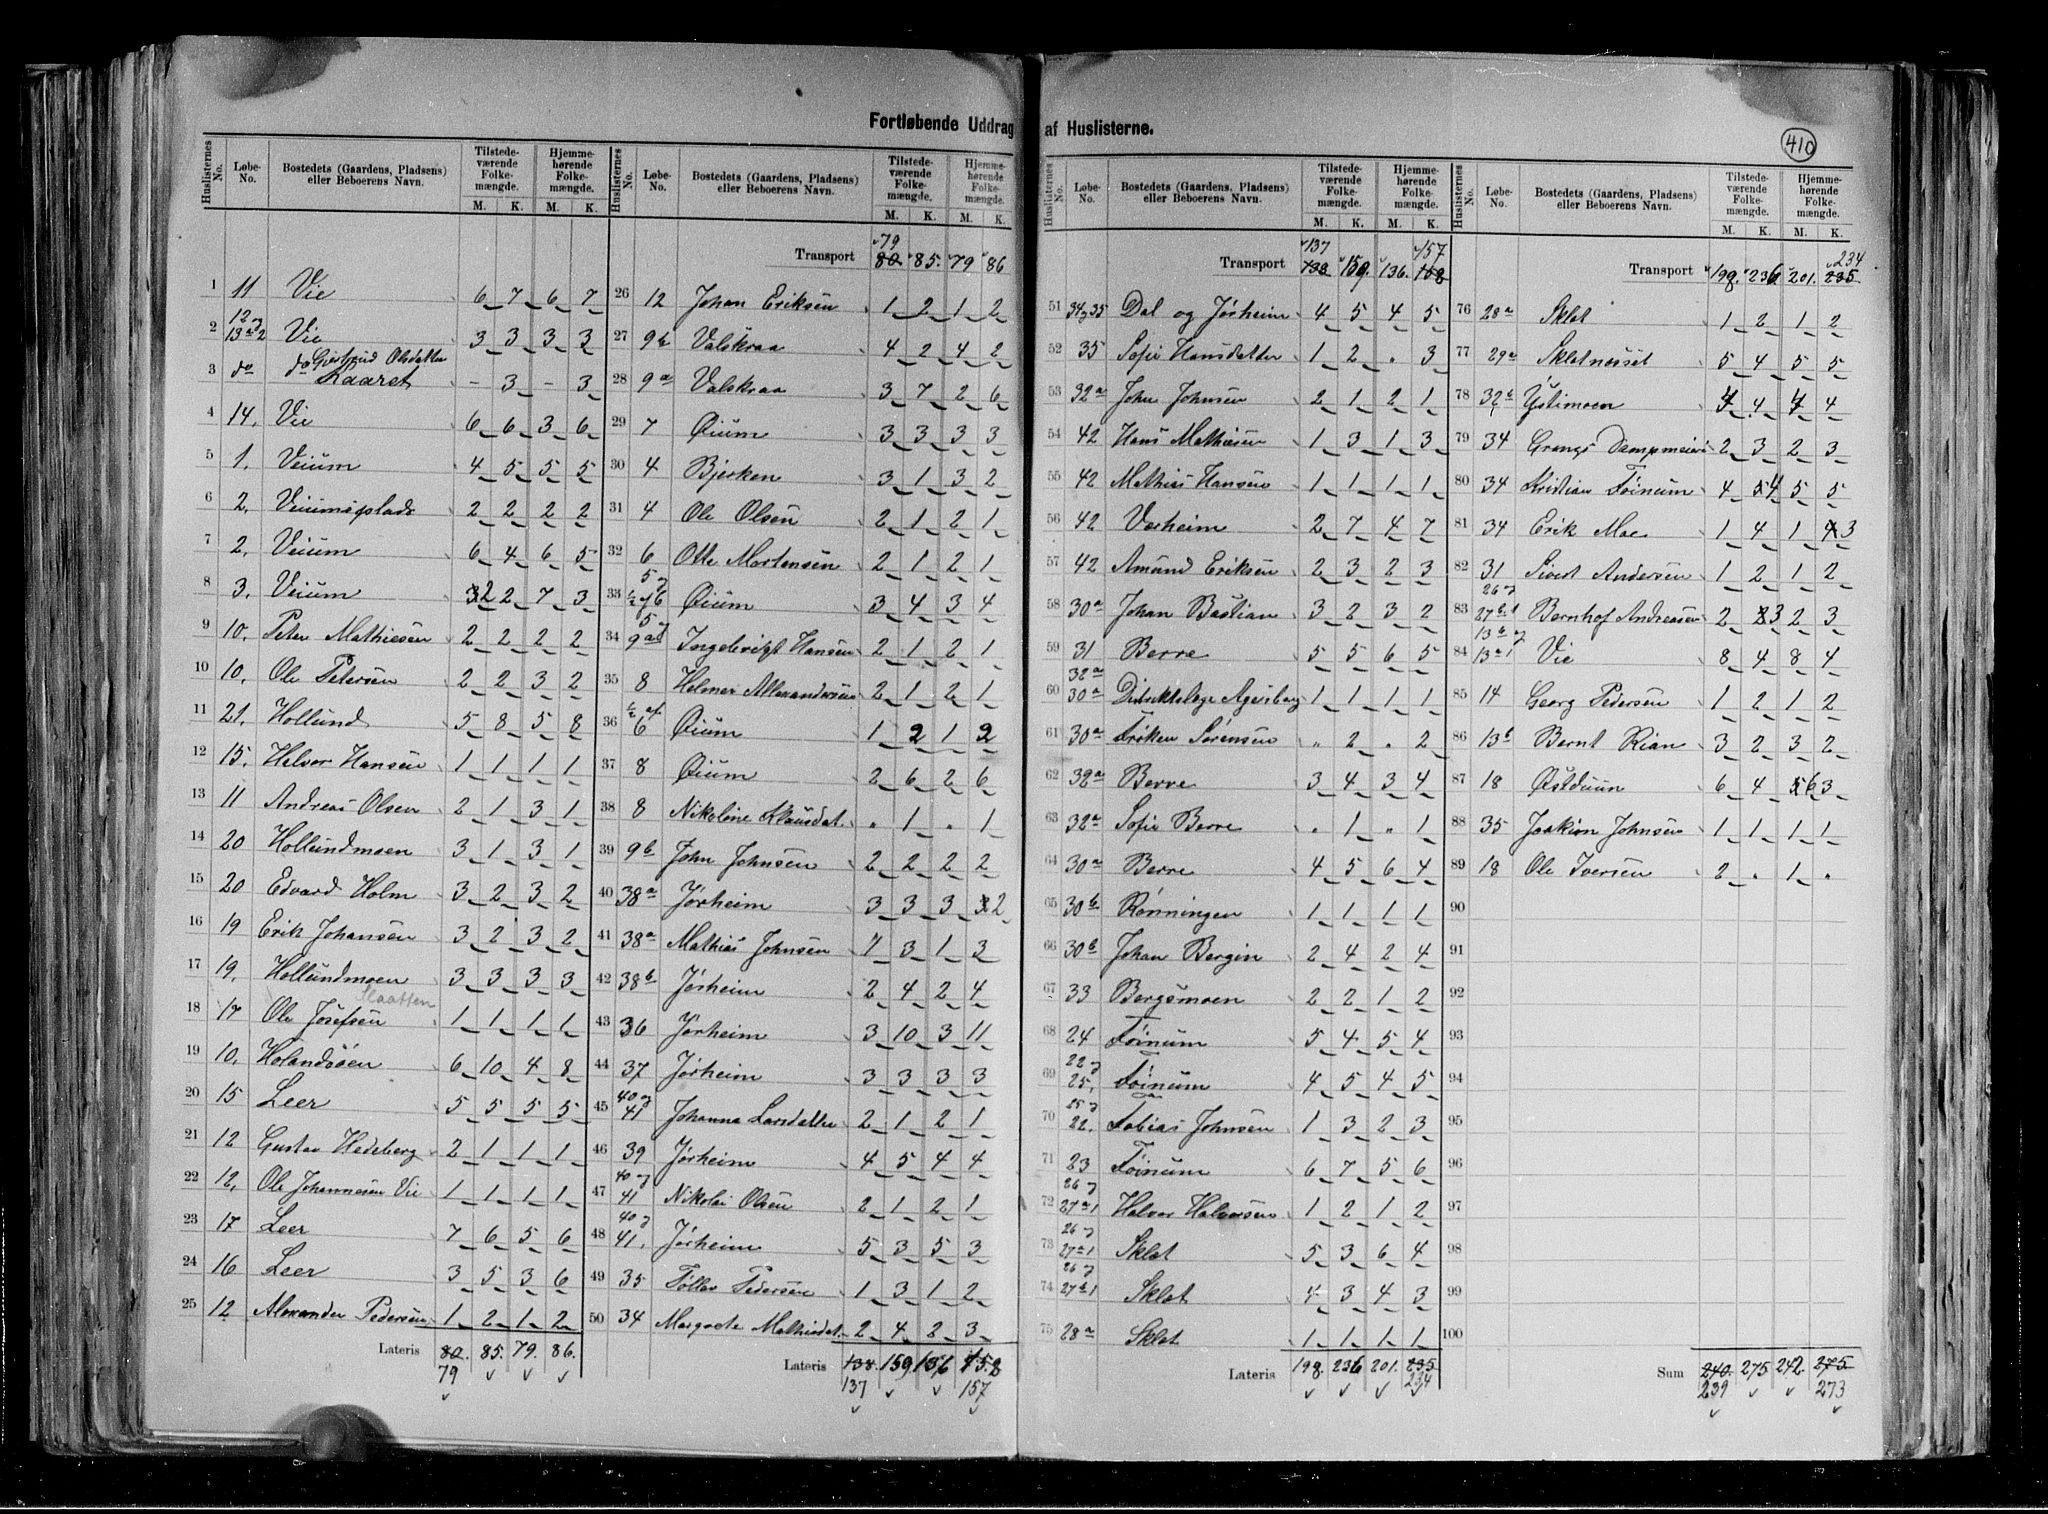 Fortløbende Uddrag af Huslisterne.
410
Huslisternes No. Løbe-No. Bostedets (Gaardens, Pladsens) eller Beboerens Navn. Tilstedeværende Folkemængde. M. K. Hjemmehørende Folkemængde. M. K.
1 11 Vie 6 7 6 7
2 12 og 13a2 Vie 3 3 3 3
3 do do Gjertrud Olsdatter Kaaret - 3 - 3
4 14. Vie 6 6 3 6
5 1. Veium 4 5 5 5
6 2. Veiumsplads 2 2 2 2
7 2. Veium 6 4 6 5
8 3. Veium 2 2 7 3
9 10. Peter Mathiesen 2 2 2 2
10 10. Ole Petersen 2 2 3 2
11 21. Hollund 5 8 5 8
12 15. Halvor Hansen 1 1 1 1
13 11 Andreas Olsen 2 1 3 1
14 20 Hollundmoen 3 1 3 1
15 20 Edvard Holm 3 2 3 2
16 19 Erik Johansen 3 2 3 2
17 19. Hollundmoen 3 3 3 3
Slaatten
18 17 Ole Josefsen 1 1 1 1
19 10. Holandsøen 6 10 4 8
20 15 Leer 5 5 5 5
21 12 Gustav Hedeberg 2 1 1 1
22 12. Ole Johannesen Vie 1 1 1 1
23 17 Leer 7 6 5 6
24 16 Leer 3 5 3 6
25 12 Alexander Pedersen 1 2 1 2
Lateris 80. 85. 79. 86.
79
Huslisternes No. Løbe-No. Bostedets (Gaardens, Pladsens) eller Beboerens Navn. Tilstedeværende Folkemængde. M. K. Hjemmehørende Folkemængde. M. K.
79
Transport 80 85. 79 86
26 12 Johan Eriksen 1 2 1 2
27 9b Valskraa 4 2 4 2
28 9a Valskraa 3 7 2 6
29 7 Øium 3 3 3 3
30 4 Bjerken 3 1 3 2
31 4 Ole Olsen 2 1 2 1
32 6 Otte Mortensen 2 1 2 1
33 5 og 1/2 af 6 Øium 3 4 3 4
34 5 og 9a Ingebrigt Hansen 2 1 2 1
35 8 Helmer Allexandersen 2 1 2 1
36 1/2 af 6 Øium 1 2 1 2
37 8 Øium 2 6 2 6
38 8 Nikoline Klausdat. " 1 " 1
39 9b John Johnsen 2 2 2 2
40 38a Jørheim 3 3 3 2
41 38a Mathias Johnsen 1 3 1 3
42 38b Jørheim 2 4 2 4
43 36 Jørheim 3 10 3 11
44 37 Jørheim 3 3 3 3
45 40 og 41 Johanna Larsdatter 2 1 2 1
46 39 Jørheim 4 5 4 4
47 40 og 41 Nikolai Olsen 2 1 2 1
48 40 og 41. Jørheim 5 3 5 3
49 35 Tollev Pedersen 1 3 1 2
50 34 Margrete Mathisdat. 2 4 2 3
Lateris 138. 159 136 158
137 157
Huslisternes No. Løbe-No. Bostedets (Gaardens, Pladsens) eller Beboerens Navn. Tilstedeværende Folkemængde. M. K. Hjemmehørende Folkemængde. M. K.
137 157
Transport 138 159. 136. 158
51 34 og 35 Dal og Jørheim 4 5 4 5
52 35 Sofie Hansdatter 1 2 " 3
53 32a John Johnsen 2 1 2 1
54 42 Hans Mathiesen 1 3 1 3
55 42 Mathias Hansen 1 1 1 1
56 42 Værheim 2 7 4 7
57 42 Amund Eriksen 2 3 2 3
58 30a Johan Bastian 3 2 3 2
59 31 Berre 5 5 6 5
60 32a 30a Distriktslæge Agersborg 1 1 1 1
61 30a Frøken Sørensen " 2 " 2
62 32a Berre 3 4 3 4
63 32a Sofie Berre " 1 " 1
64 30a Berre 4 5 6 4
65 30b Rønningen 1 1 1 1
66 30b Johan Bergin 2 4 2 4
67 33 Bergsmoen 2 2 1 2
68 24 Føinum 5 4 5 4
69 22 og 25. Føinum 4 5 4 5
70 25 og 22. Tobias Johnsen 1 3 2 3
71 23 Føinum 6 7 5 6
72 26 og 27a1 Halvor Halvorsen 1 2 1 2
73 26 og 27a1 Sklet 5 3 6 4
74 26 og 27b1 Sklet 4 3 4 3
75 28a Sklet 1 1 1 1
Lateris 198. 236 201. 235
234
Huslisternes No. Løbe-No. Bostedets (Gaardens, Pladsens) eller Beboerens Navn. Tilstedeværende Folkemængde. M. K. Hjemmehørende Folkemængde. M. K.
234
Transport 198. 236 201. 235
76 28a Sklet 1 2 1 2
77 29a Skletnesset 5 4 5 5
78 32b Ystimoen 4 4 4 4
79 34 Grongs Dampmeieri 2 3 2 3
80 34 Kristian Føinum 4 4 5 5
81 34 Erik Moe 1 4 1 3
82 31 Sivert Andersen 1 2 1 2
83 26 og 27b1 Bernhof Andreasen 2 3 2 3
84 13b og 13a1 Vie 8 4 8 4
85 14 Georg Pedersen 1 2 1 2
86 13b Bernt Rian 3 2 3 2
87 18 Østduun 6 4 6 3
88 35 Joakim Johnsen 1 1 1 1
89 18 Ole Iversen 2 " 1 "
90
91
92
93
94
95
96
97
98
99
100
Sum 240. 275 242. 275.
239 273